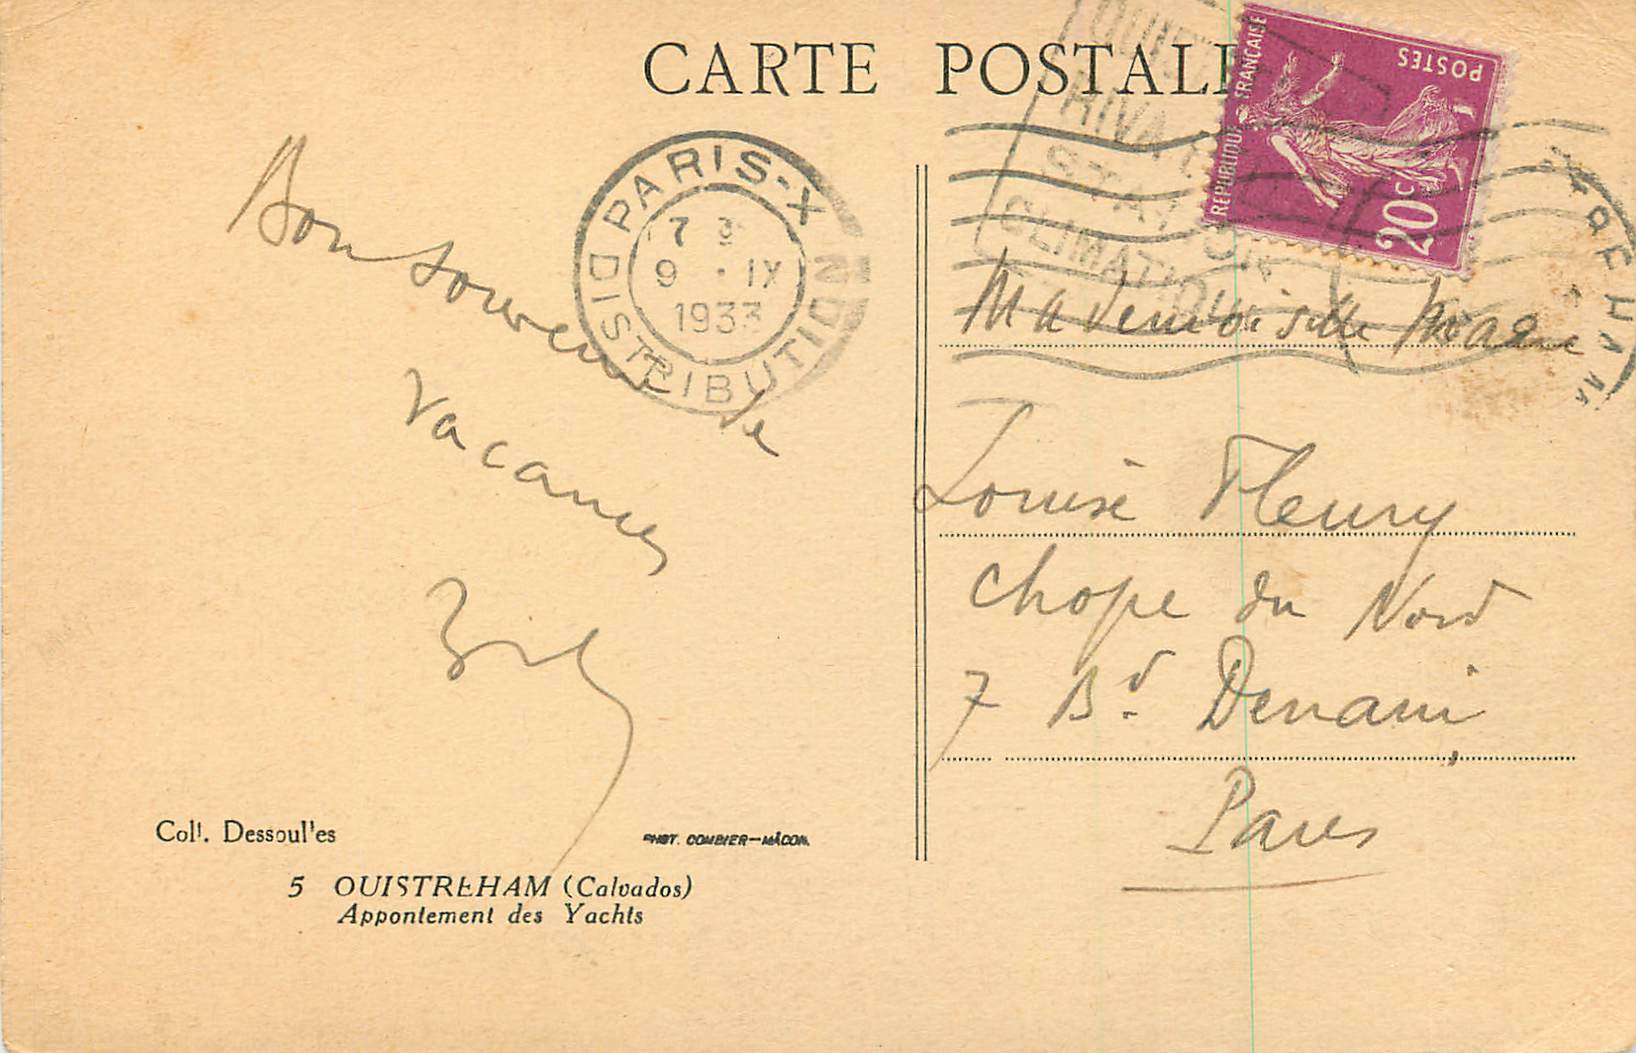 CARTE POSTALE
REPUBLIQUE FRANÇAISE
POSTES
20c
RIVA
STATION
CLIMATIQUE
PARIS-X
7
9 · IX
1933
DISTRIBUTION
Bon souvenir de
vacances
Mademoiselle
Louise Fleury
Chope du Nord
7 Bd. Denain
Paris
Coll. Dessoul'es
PHOT. COMBIER—MÂCON.
5 OUISTREHAM (Calvados)
Appontement des Yachts